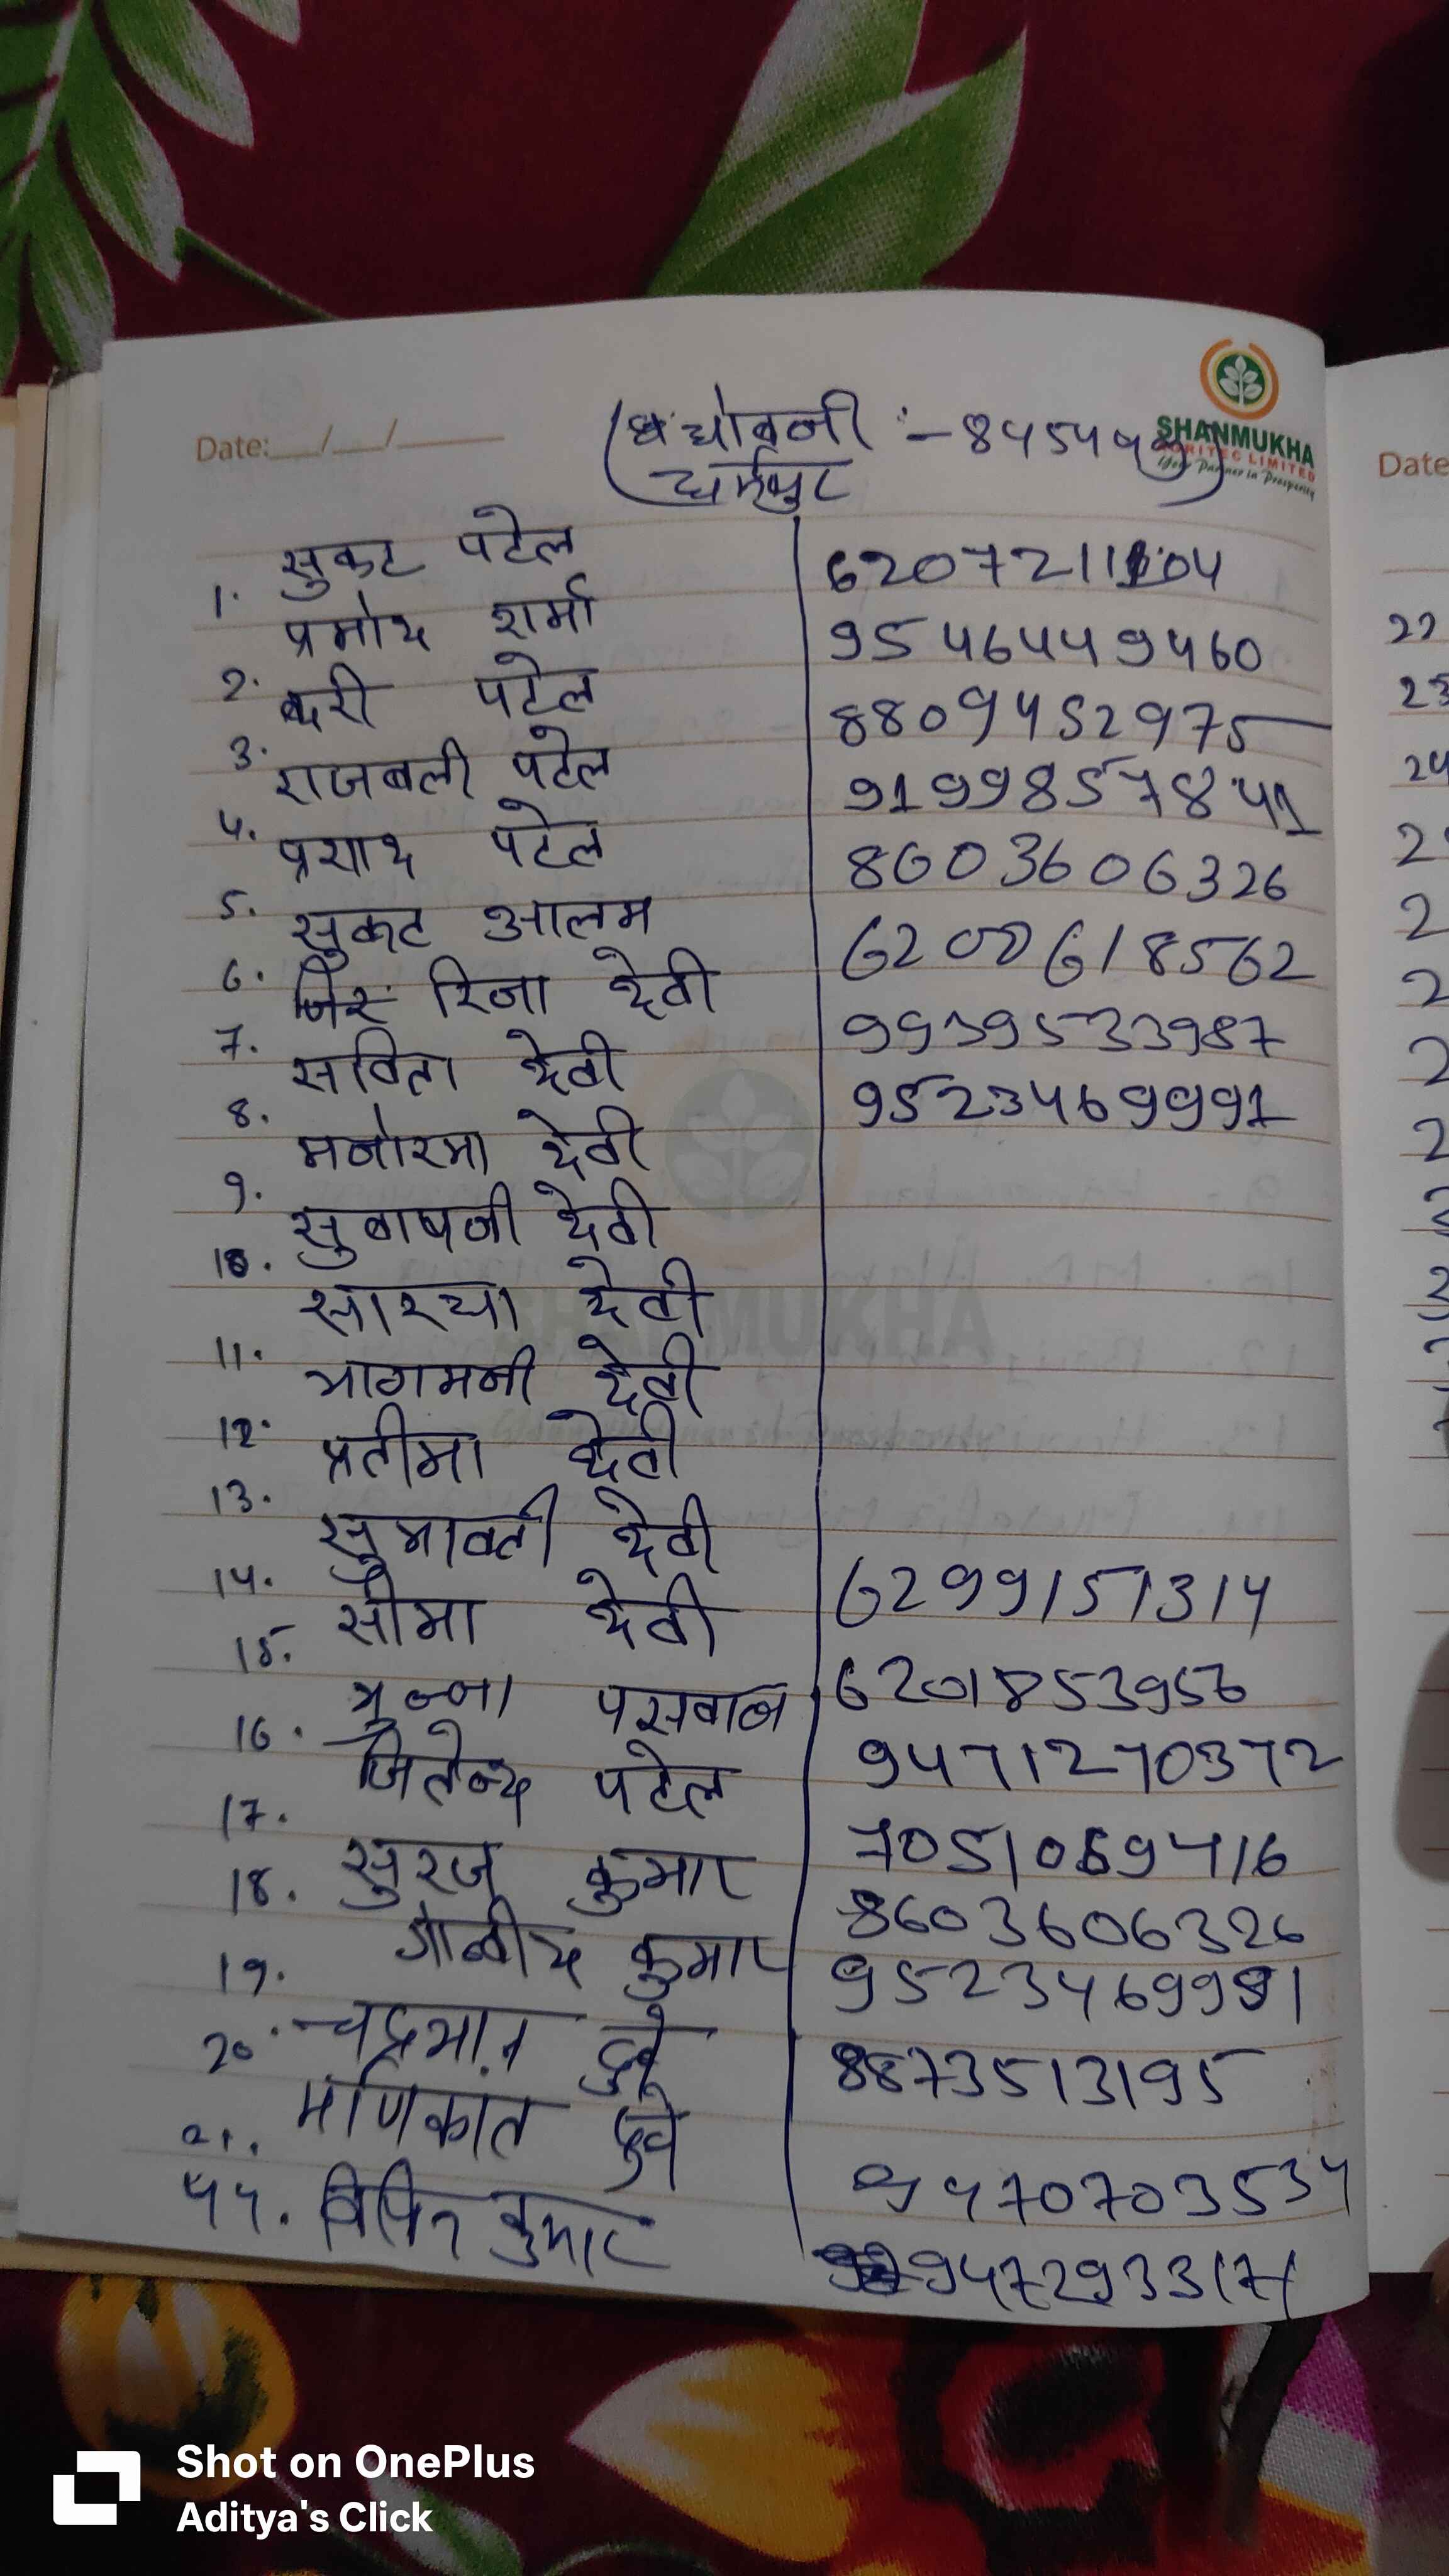 Date: __/__/____
SHANMUKHA
AGRITEC LIMITED
Your Partner in Prosperity
Date
धर्मपुर
1. सुकट पटेल 6207211104
2. प्रमोद शर्मा 95464449460
3. बदरी पटेल 8809452975
4. राजबली पटेल 919985७841
5. प्रसाद पटेल 8603606326
6. सुकट आलम 6200618562
7. रिजा देवी 9939533987
8. सविता देवी 9523469991
9. मनोरमा देवी
10. देवी
11. सारया देवी
12. भागमनी देवी
13. प्रतीमा देवी
14. सुभावती देवी 6299151314
15. सीमा देवी 6201853956
16. मुन्ना पसवान 9471270372
17. जितेन्द पटेल 7051069416
18. सुरज कुमार 8603606326
19. गोबीद कुमार 9523469991
20. चद्रभान दुबे 8873513195
21. मणिकांत दुबे 9470703534
44. विपिन कुमार 9472933171
22
23
24
SHANMUKHA
Shot on OnePlus
Aditya's Click